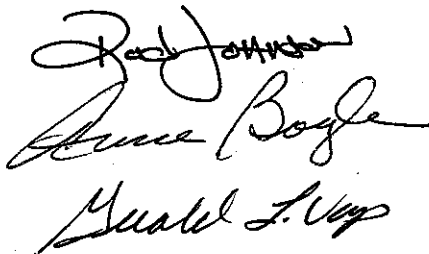 Rod Johnson
Anne Boyle
Gerald L.